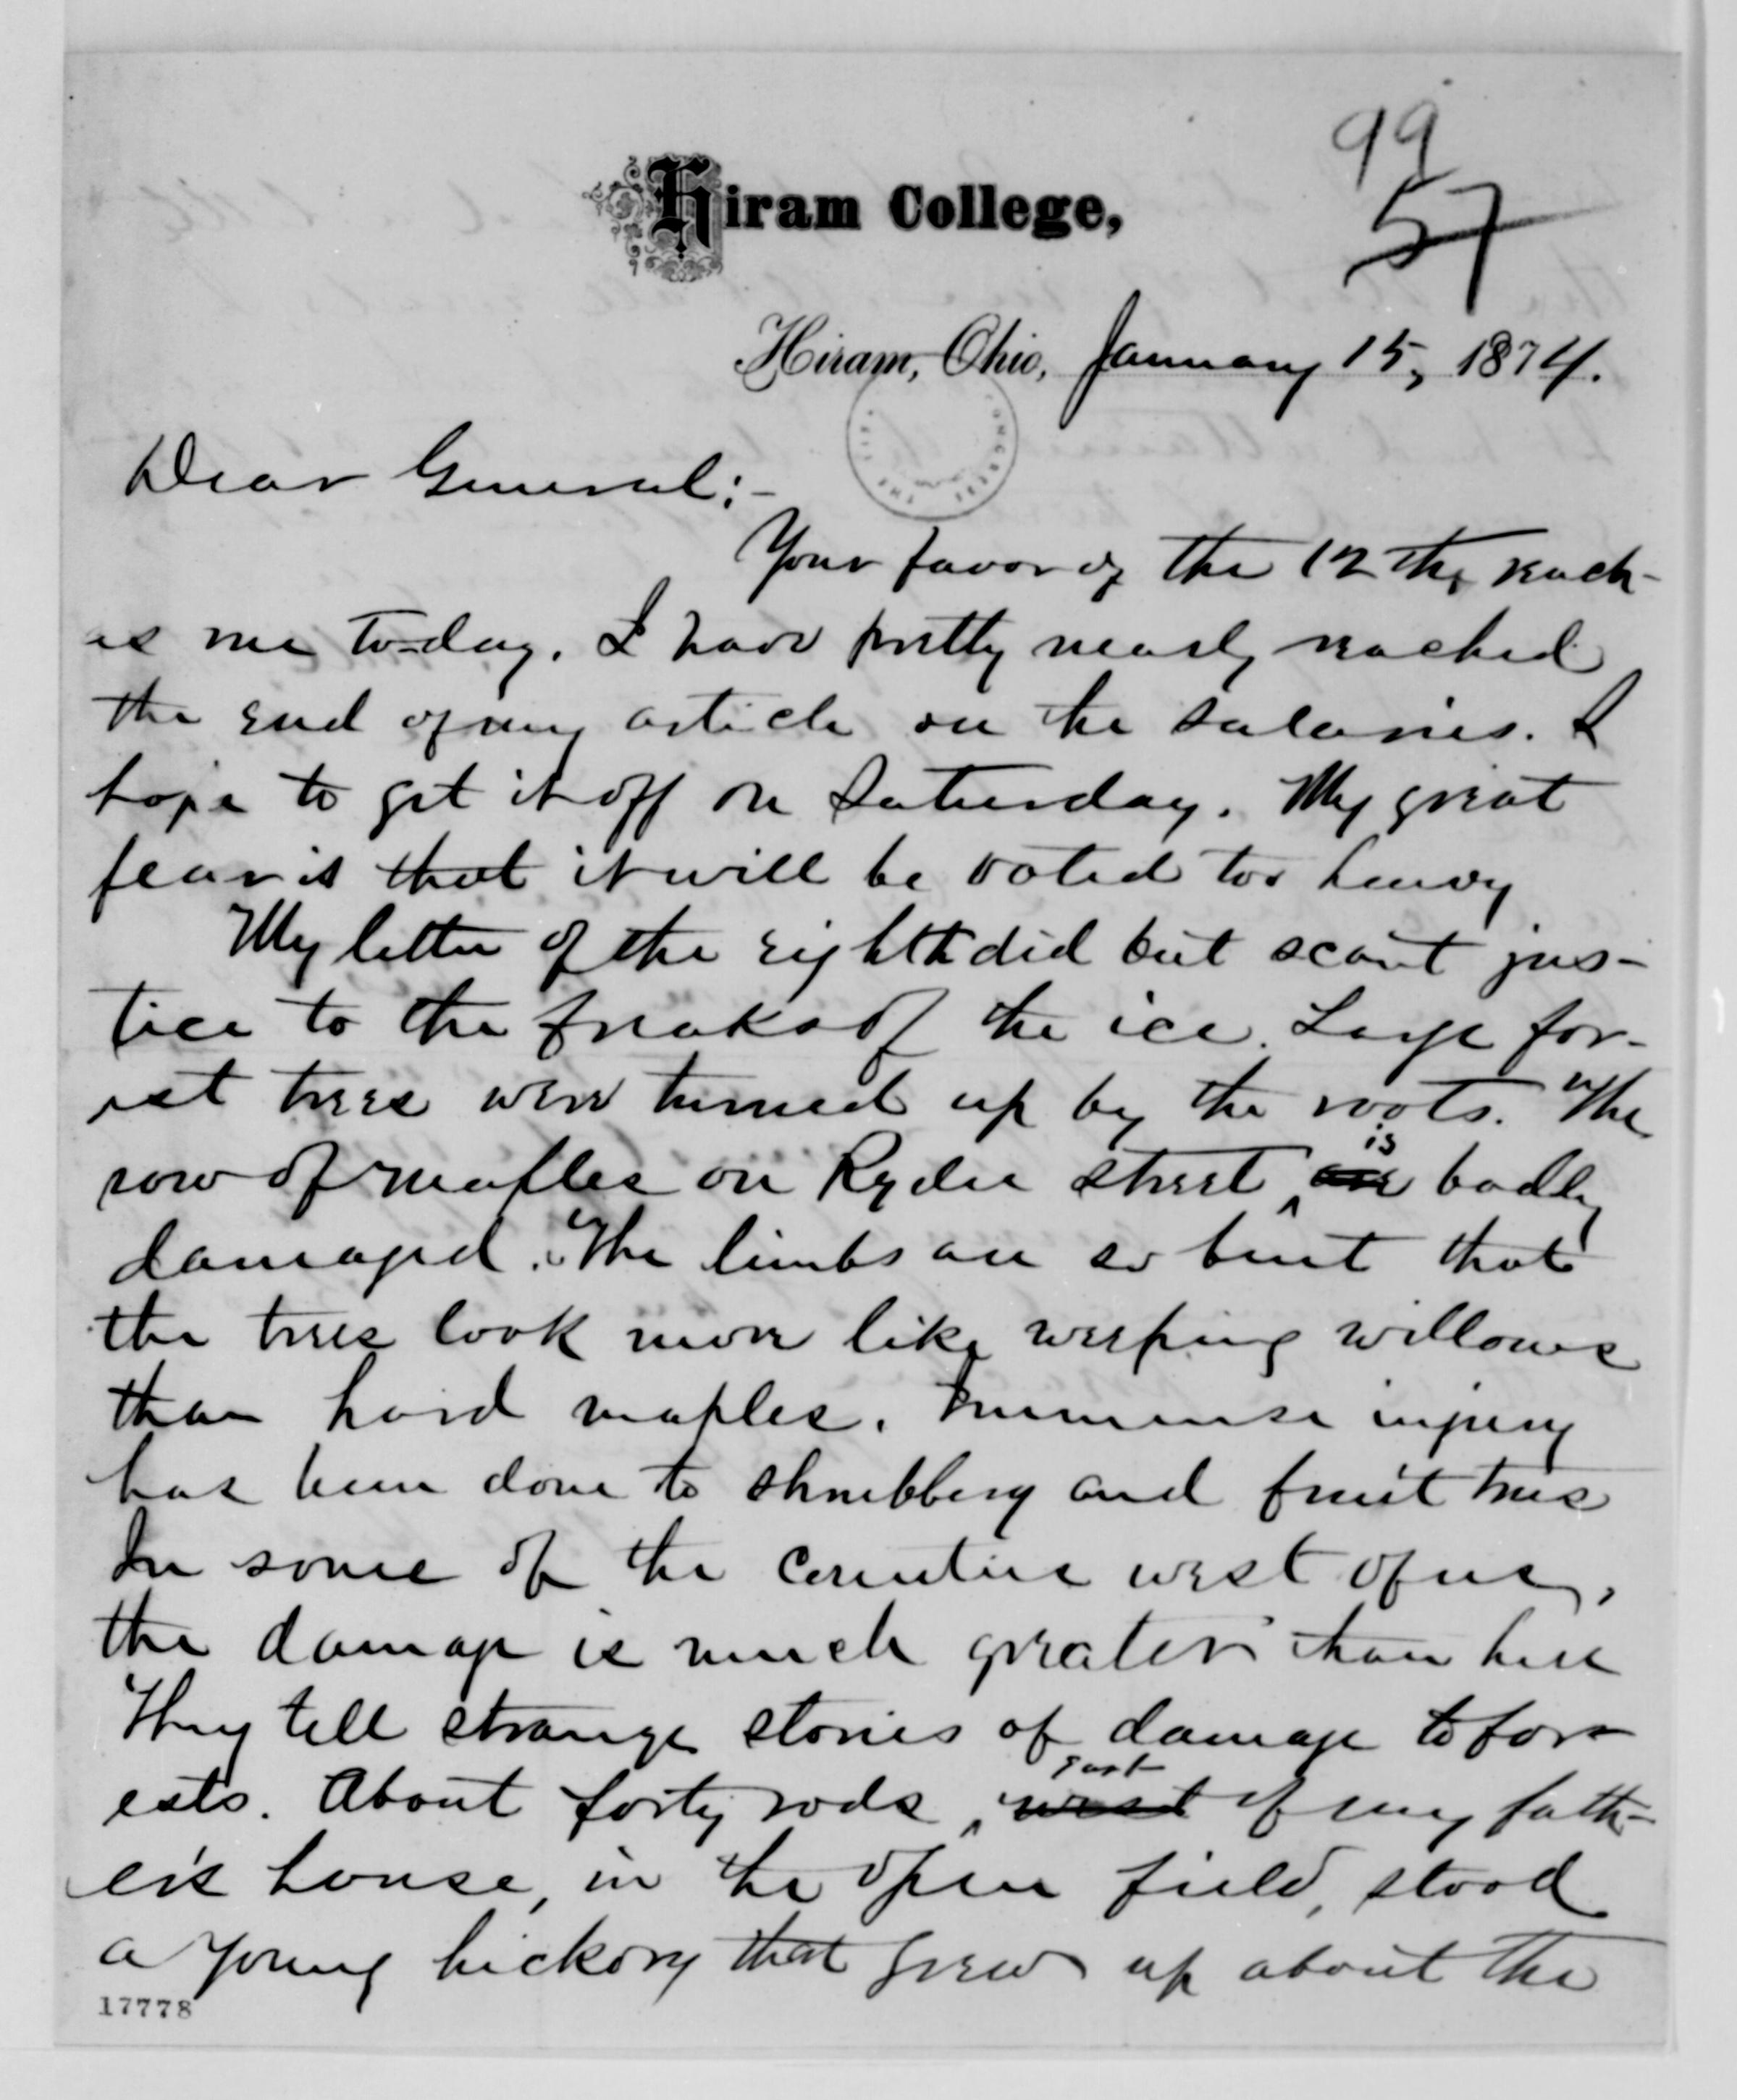 99
57
Hiram College,
Hiram, Ohio, January 15, 1874.
Dear General:-
Your favor of the 12th, reach-
es me to-day. I have pretty nearly reached
the end of my article on the salaries. I
hope to get it off on Saturday. My great
fear is that it will be voted too heavy
My letter of the eighth did but scant jus-
tice to the freaks of the ice. Large for-
est trees were turned up by the roots. The
is
row of maples on Ryder street are badly
damaged. The limbs are so bent that
the trees look more like weeping willows
than hard maples. Immense injury
has been done to shrubbery and fruit trees
In some of the counties west of us,
the damage is much greater than here
They tell strange stories of damage to for
east
ests. About forty rods west of my fath-
er's house, in the open field, stood
a young hickory that grew up about the
17778